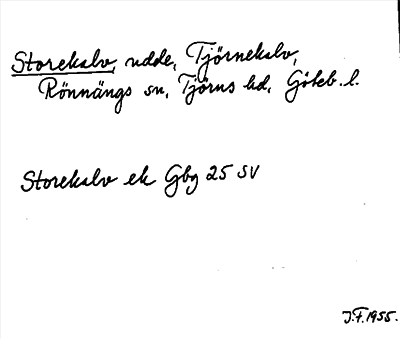 Storekalv, udde, Tjörnekalv,
Rönnängs sn, Tjörns hd, Göteb. l.
Storekalv ek Gbg 25 SV
J.F. 1955.